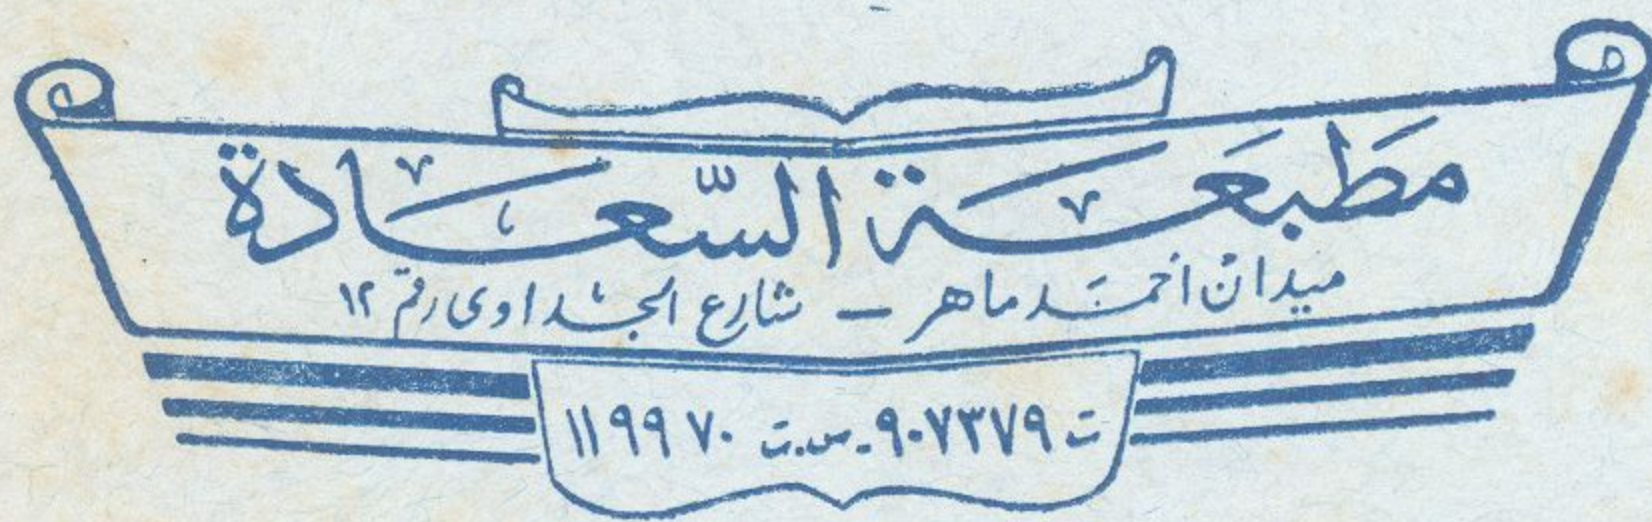 مَطبعَة السّعَادة
ميدان أحمَد ماهر – شارع الجداوى رقم ١٢
ت ٩٠٧٣٧٩ - س.ت ١١٩٩٧٠